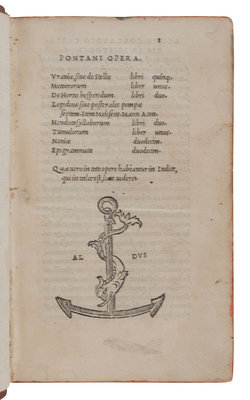 1
PONTANI OPERA.
Vrania, siue de Stellis libri quinq.
Meteororum liber unus.
De Hortis hesperidum libri duo.
Lepidina siue postorales pompæ
septem. Item Meliseus. Mæon. Acon.
Hendecasyllaborum libri duo.
Tumulorum liber unus.
Neniæ duodecim.
Epigrammata duodecim.
Quæ uero in toto opere habeantur in Indice,
qui in calce est, licet uidere.
AL DVS